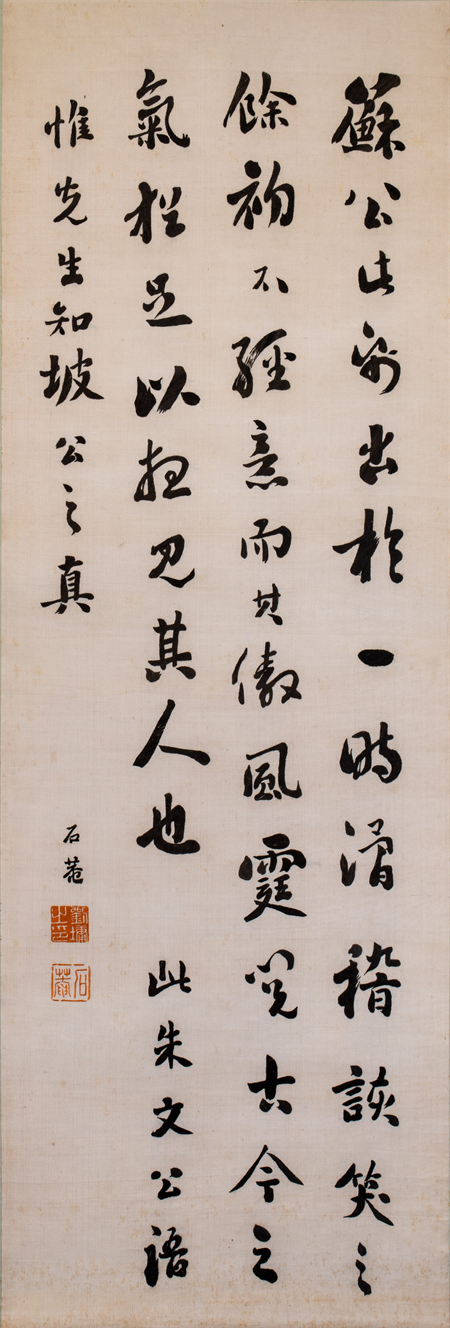 蘇公此帋出於一時滑稽詼笑之
餘初不經意而其傲風霆閱古今之
氣猶足以想見其人也 此朱文公語
惟先生知坡公之真
石菴
劉墉之印
石菴